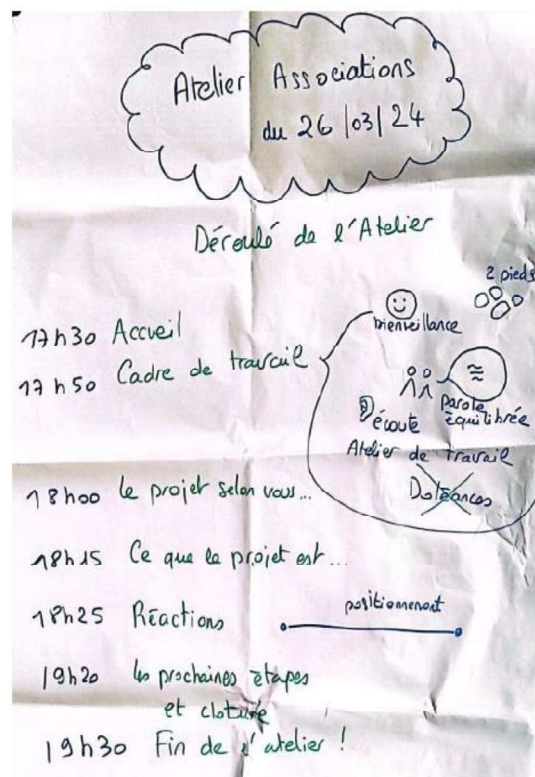 Atelier Associations
du 26/03/24
Déroulé de l'Atelier
17h30 Accueil
17h50 Cadre de travail
2 pieds
bienveillance
écoute
parole
équilibrée
Atelier de travail
Doléances
18h00 le projet selon vous...
18h15 Ce que le projet est...
18h25 Réactions
positionnement
19h20 les prochaines étapes
et cloture
19h30 Fin de l'atelier !